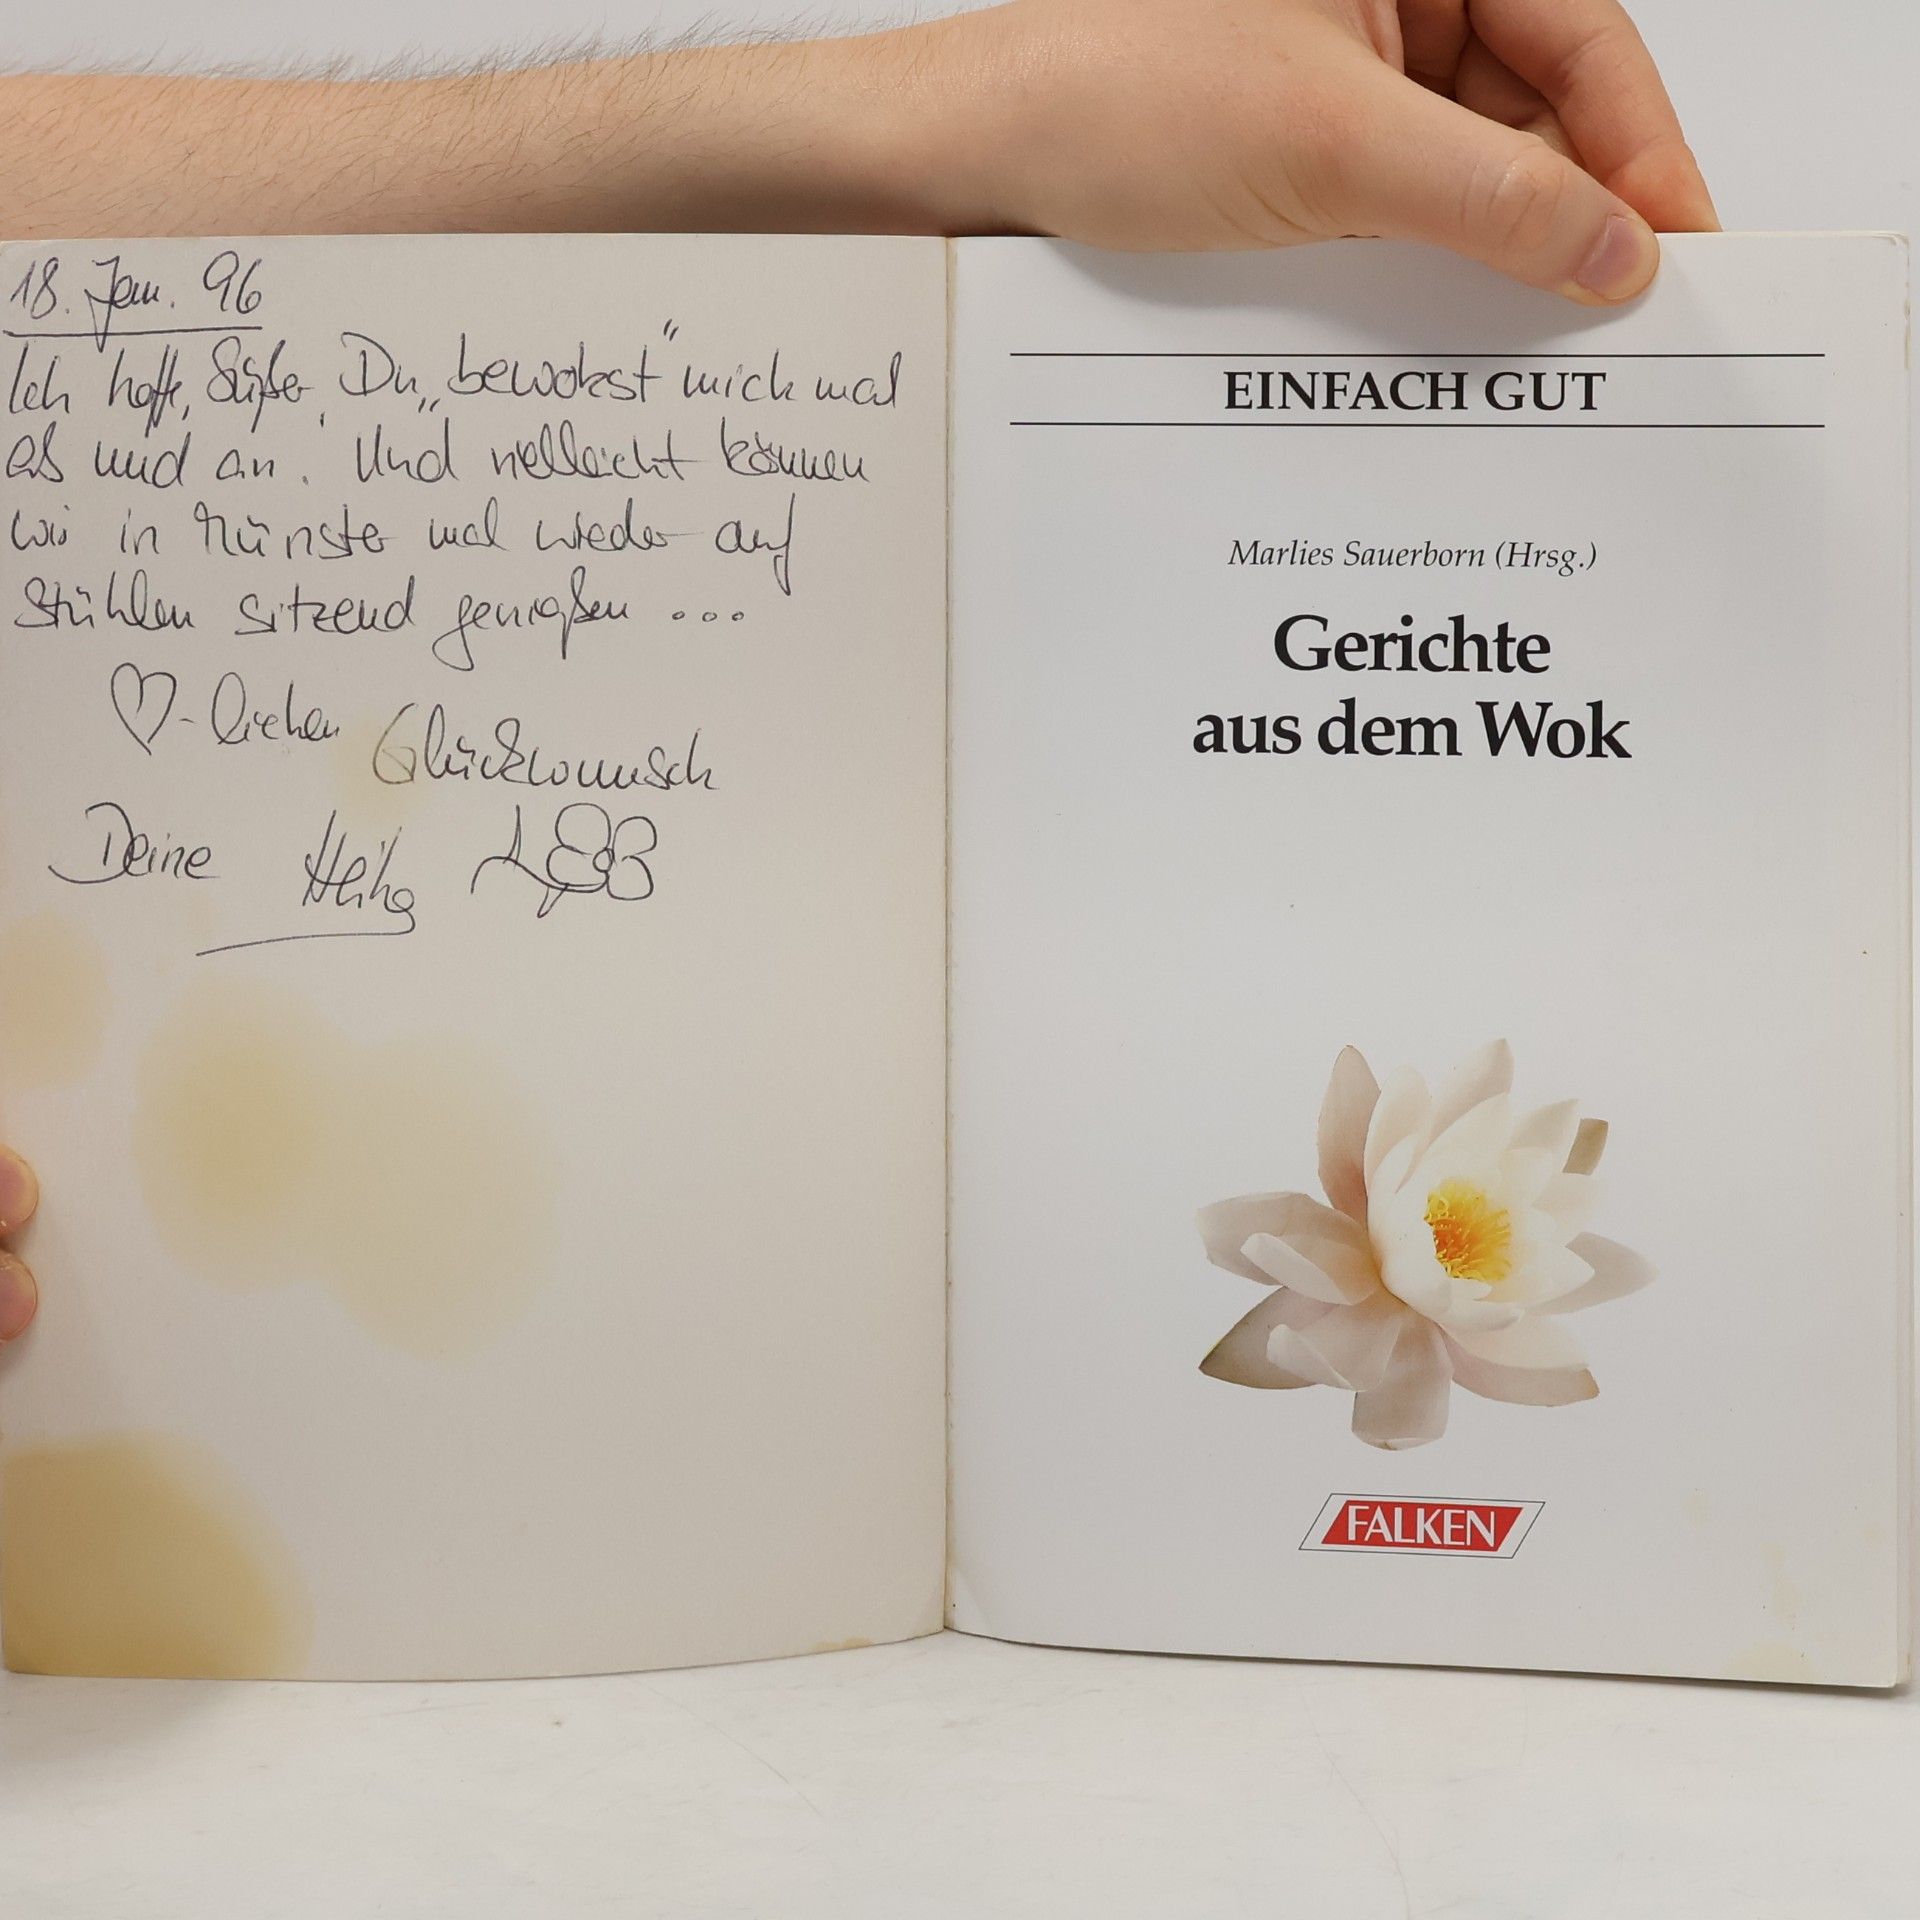 18. Jan. 96
Ich hoffe, Süßer, Du „bewokst" mich mal
ab und an. Und vielleicht können
wir in Münster mal wieder auf
Stühlen sitzend genießen ...
♡-lichen
Glückwunsch
Deine
EINFACH GUT
Marlies Sauerborn (Hrsg.)
Gerichte
aus dem Wok
FALKEN